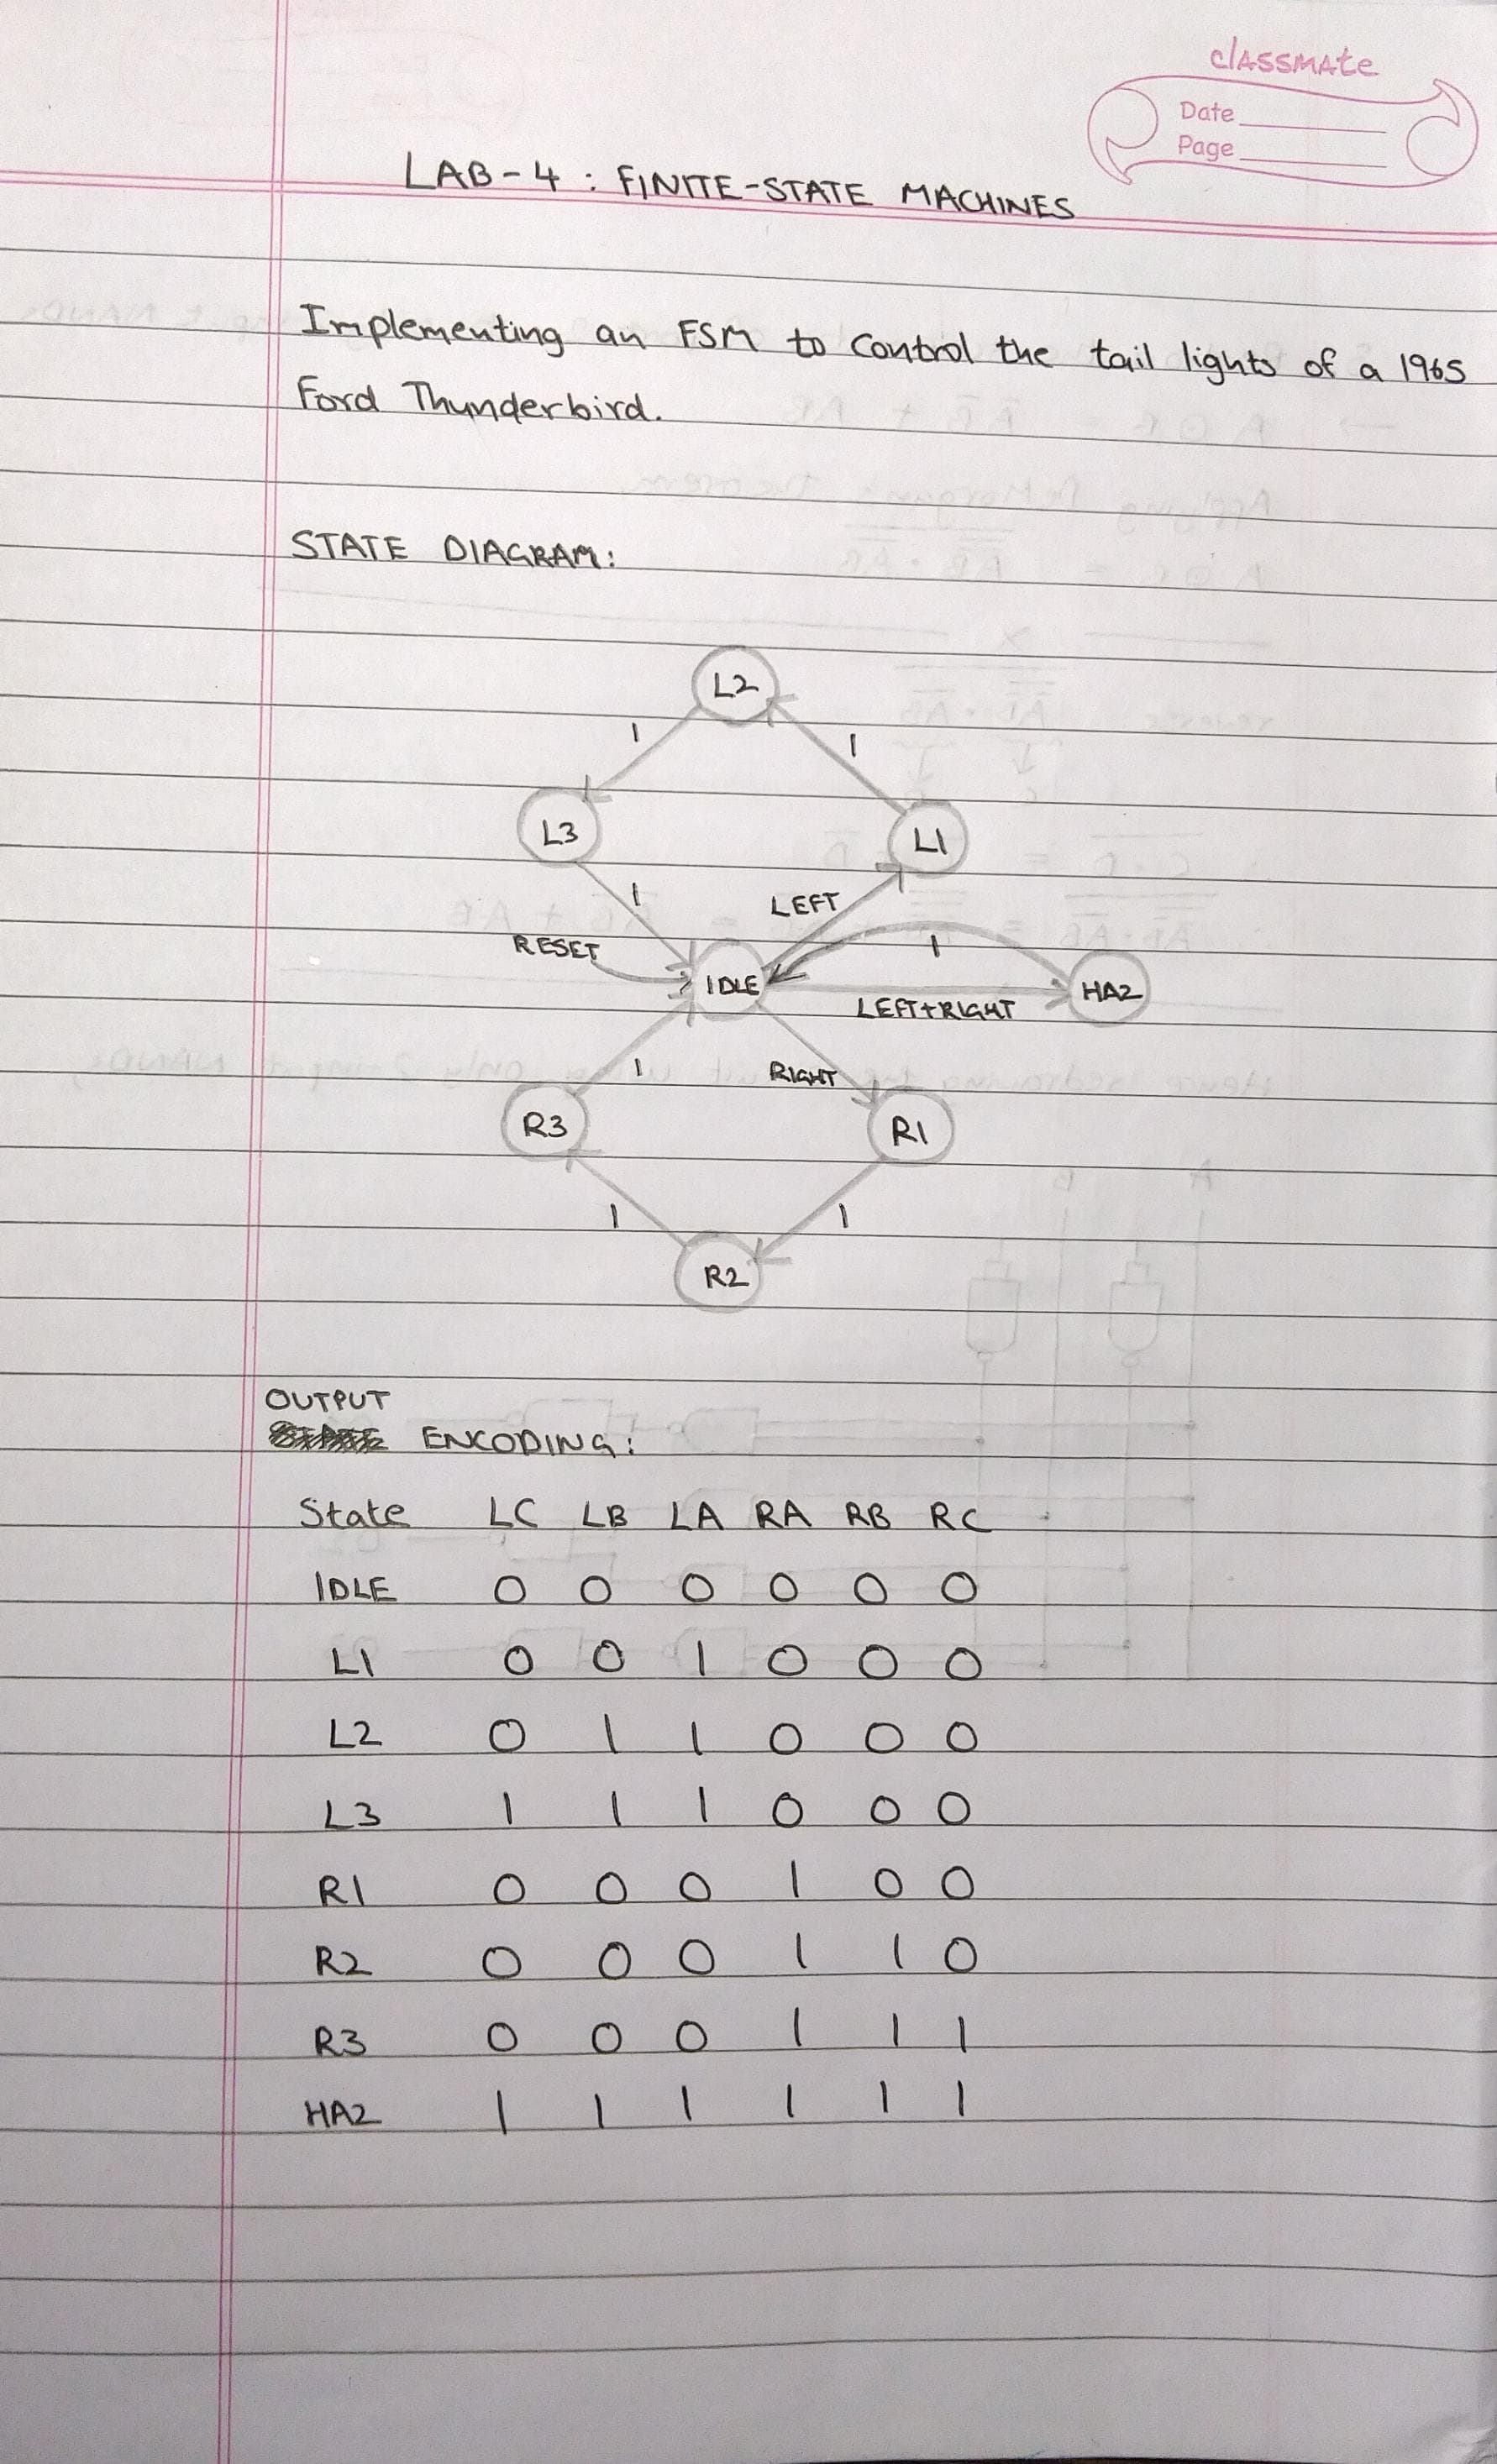 classmate
Date
Page
LAB-4 : FINITE-STATE MACHINES
Implementing an FSM to control the tail lights of a 1965
Ford Thunderbird.
STATE DIAGRAM:
L2
1 1
L3 L1
1 LEFT
RESET 1
IDLE HAZ
LEFT+RIGHT
1 RIGHT
R3 R1
1 1
R2
OUTPUT
ENCODING:
State LC LB LA RA RB RC
IDLE 0 0 0 0 0 0
L1 0 0 1 0 0 0
L2 0 1 1 0 0 0
L3 1 1 1 0 0 0
R1 0 0 0 1 0 0
R2 0 0 0 1 1 0
R3 0 0 0 1 1 1
HAZ 1 1 1 1 1 1